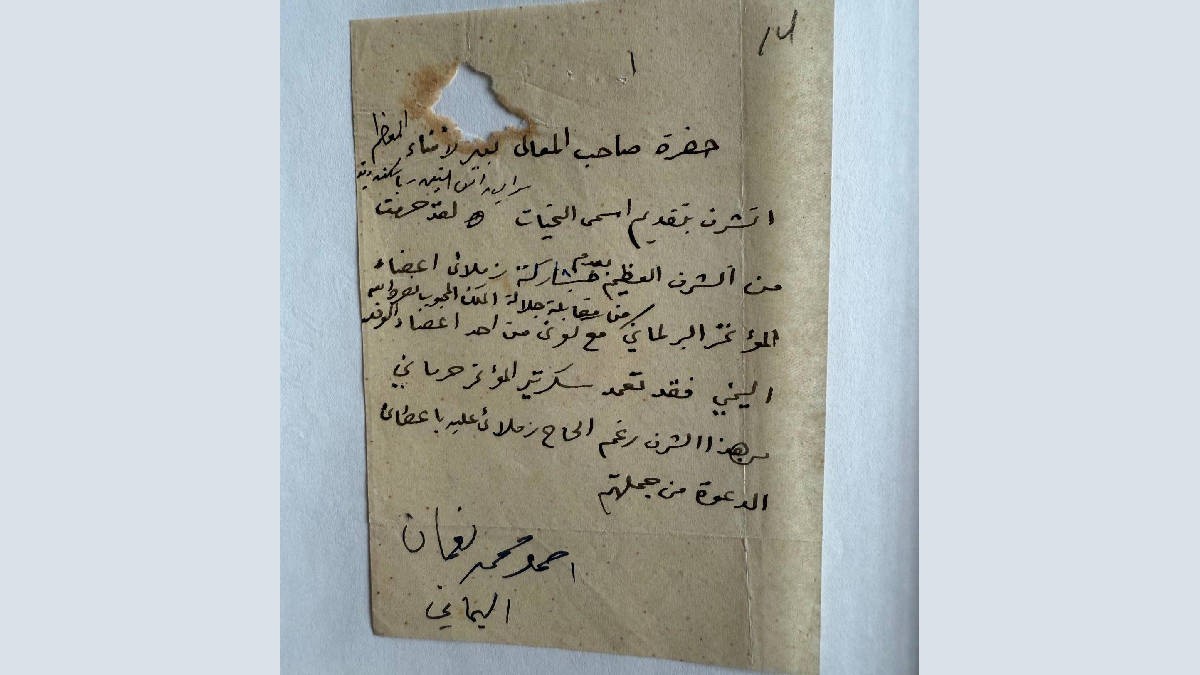 ١٤
١
حضرة صاحب المعالي كبير الأمناء المعظم
سراي راس التين باسكندرية
اتشرف بتقديم اسمى التحيات لقد حرمت
من الشرف العظيم بعدم مشاركة زملائي اعضاء
المؤتمر البرلماني من مقابلة جلالة الملك المحبوب
مع كوني من احد اعضاء الوفد
اليمني فقد تعمد سكرتير المؤتمر حرماني
من هذا الشرف رغم الحاح زملائي عليه باعطائي
الدعوة من جملتهم
احمد محمد نعمان
اليماني